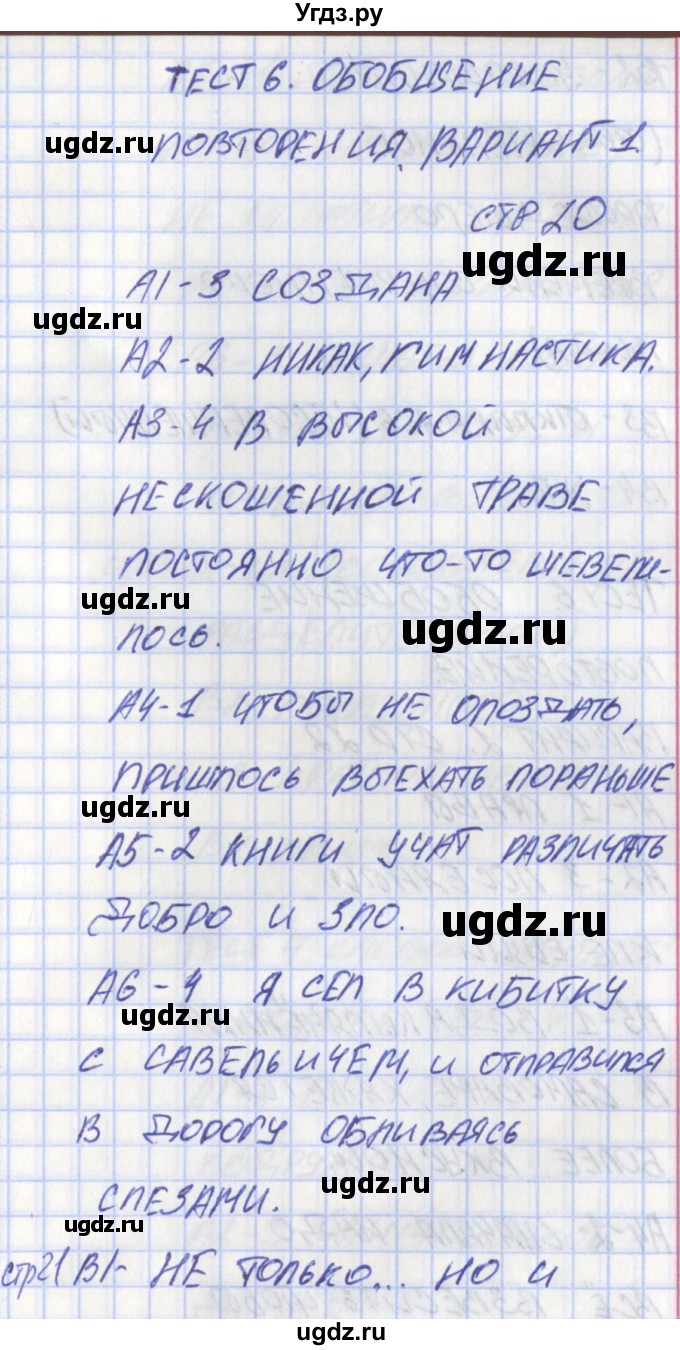 Угдз.ру
ТЕСТ 6. ОБОБЩЕНИЕ
ugdz.ru ПОВТОРЕНИЯ. ВАРИАНТ 1
СТР 20
ugdz.ru
А1-3 СОЗДАНА
ugdz.ru
А2-2 НИКАК, ГИМНАСТИКА.
А3-4 В ВЫСОКОЙ
НЕСКОШЕННОЙ ТРАВЕ
ПОСТОЯННО ЧТО-ТО ШЕВЕЛИ-
ugdz.ru
ugdz.ru
ЛОСЬ.
А4-1 ЧТОБЫ НЕ ОПОЗДАТЬ,
ПРИШЛОСЬ ВЫЕХАТЬ ПОРАНЬШЕ
ugdz.ru
А5-2 КНИГИ УЧАТ РАЗЛИЧАТЬ
ДОБРО И ЗЛО.
ugdz.ru
А6-4 Я СЕЛ В КИБИТКУ
ugdz.ru
С САВЕЛЬИЧЕМ, И ОТПРАВИЛСЯ
В ДОРОГУ ОБЛИВАЯСЬ
СЛЕЗАМИ.
ugdz.ru
стр21 В1- НЕ ТОЛЬКО... НО И
ugdz.ru